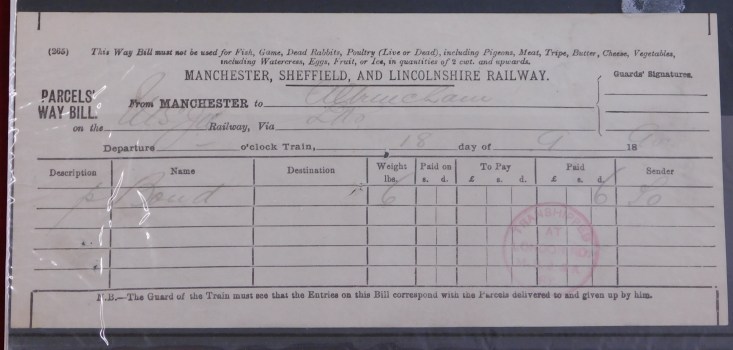 (265) This Way Bill must not be used for Fish, Game, Dead Rabbits, Poultry (Live or Dead), including Pigeons, Meat, Tripe, Butter, Cheese, Vegetables,
including Watercress, Eggs, Fruit, or Ice, in quantities of 2 cwt. and upwards.
MANCHESTER, SHEFFIELD, AND LINCOLNSHIRE RAILWAY.
Guards' Signatures.
PARCELS' WAY BILL.
From MANCHESTER to Altrincham
on the Railway, Via
Departure o'clock Train, 18 day of 9 18 9
Description Name Destination Weight lbs. Paid on s. d. To Pay £ s. d. Paid £ s. d. Sender
p Bond " 6 6 Lo
TRANSHIPPED
AT
N.B.—The Guard of the Train must see that the Entries on this Bill correspond with the Parcels delivered to and given up by him.